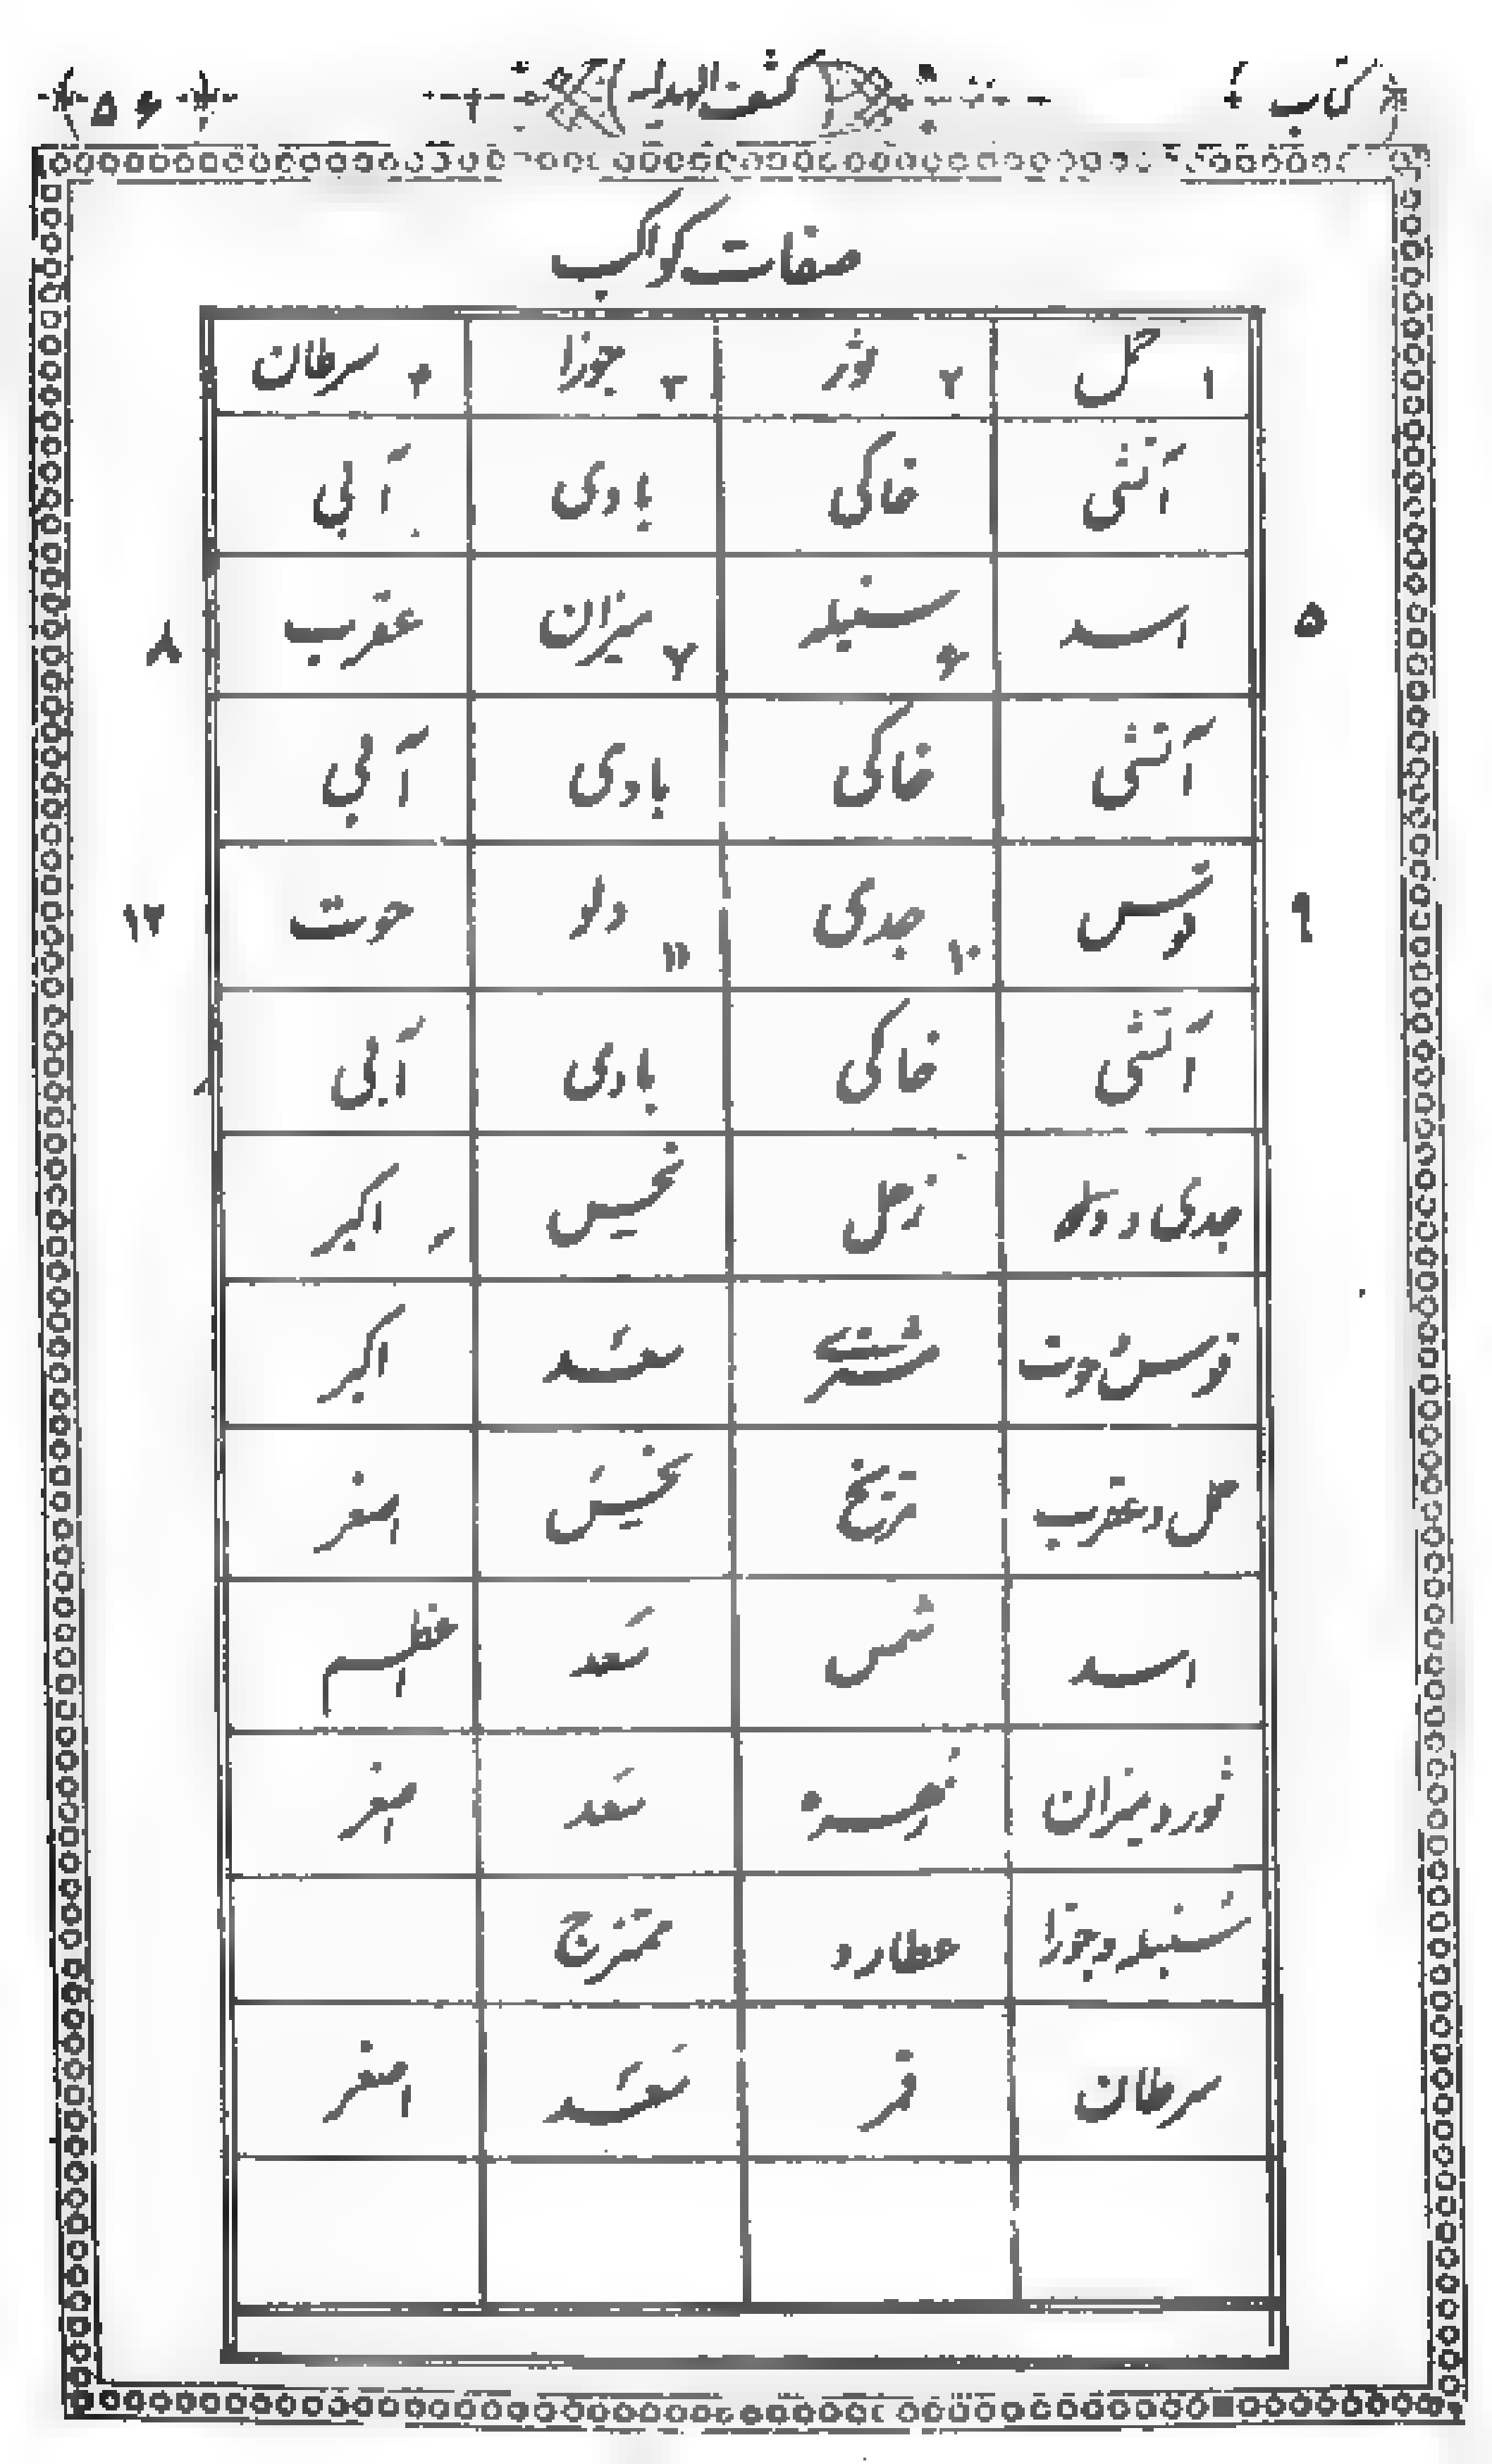 کتاب کشف الهدایه ۵۶
صفات کواکب
۱ حمل ۲ ثور ۳ جوزا ۴ سرطان
آتشی خاکی بادی آبی
۵ اسد ۶ سنبله ۷ میزان عقرب ۸
آتشی خاکی بادی آبی
۹ قوس ۱۰ جدی ۱۱ دلو حوت ۱۲
آتشی خاکی بادی آبی
جدی و دلو زحل نحس اکبر
قوس حوت مشتری سعد اکبر
حمل و عقرب مریخ نحس اصغر
اسد شمس سعد اعظم
ثور و میزان زهره سعد اصغر
سنبله و جوزا عطارد ممتزج
سرطان قمر سعد اصغر